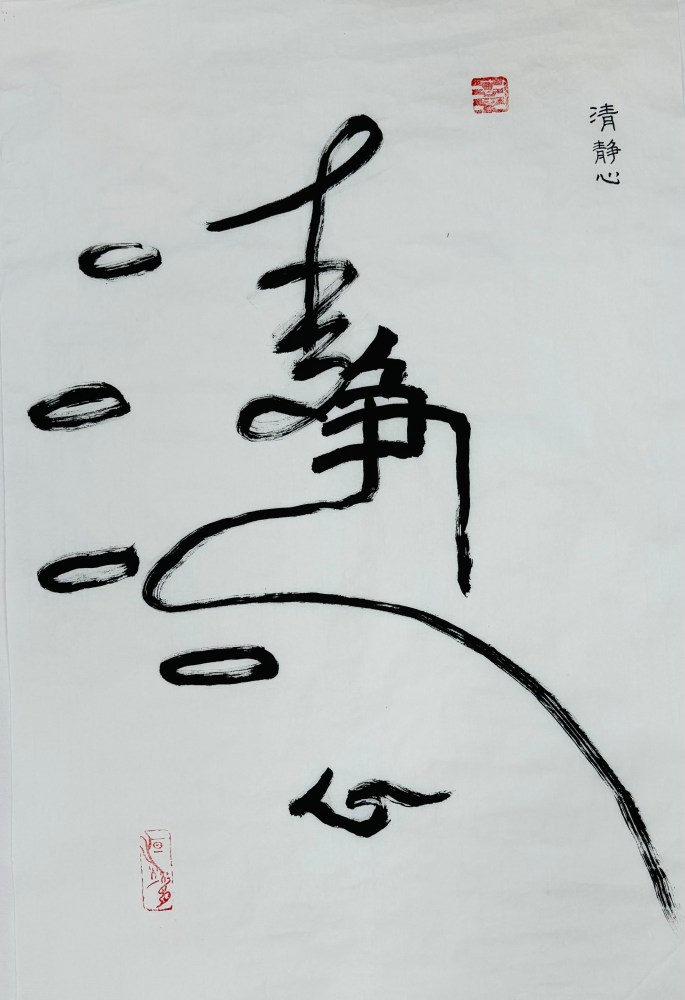 清静心
清静心